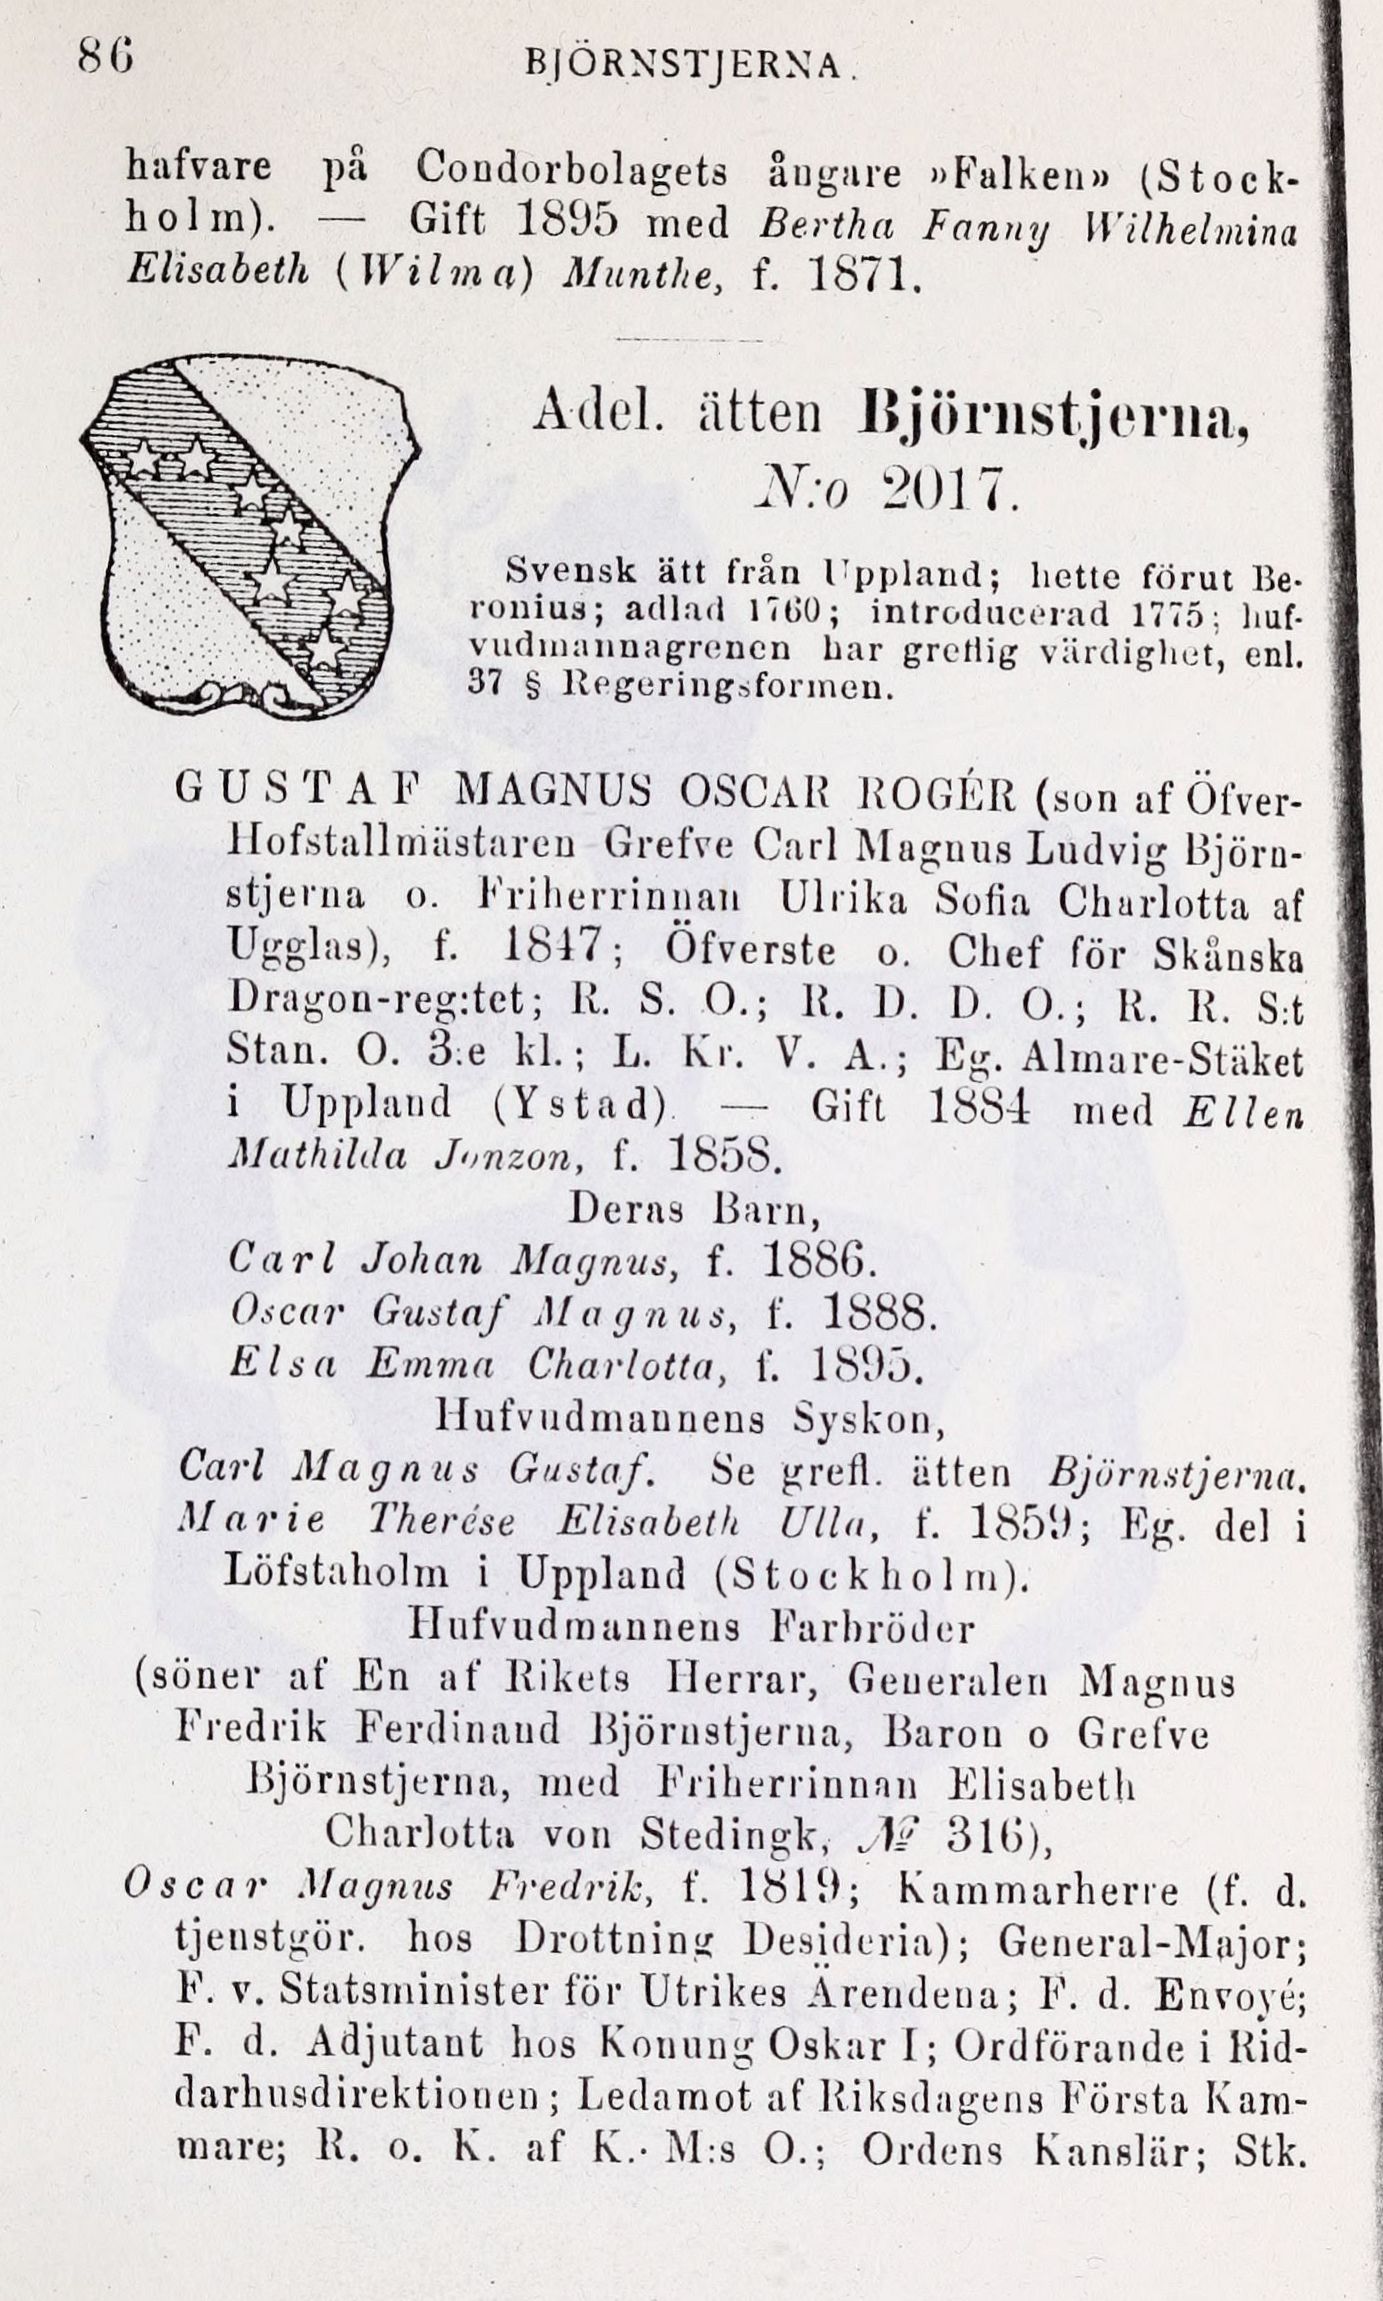 86
BJÖRNSTJERNA.
hafvare på Condorbolagets ångare »Falken» (Stock-
holm). — Gift 1895 med Bertha Fanny Wilhelmina
Elisabeth (Wilma) Munthe, f. 1871.
Adel. ätten Björnstjerna,
N:o 2017.
Svensk ätt från Uppland; hette förut Be-
ronius; adlad 1760; introducerad 1775; huf-
vudmannagrenen har greflig värdighet, enl.
37 § Regeringsformen.
GUSTAF MAGNUS OSCAR ROGÉR (son af Öfver-
Hofstallmästaren Grefve Carl Magnus Ludvig Björn-
stjerna o. Friherrinnan Ulrika Sofia Charlotta af
Ugglas), f. 1847; Öfverste o. Chef för Skånska
Dragon-reg:tet; R. S. O.; R. D. D. O.; R. R. S:t
Stan. O. 3:e kl.; L. Kr. V. A.; Eg. Almare-Stäket
i Uppland (Ystad). — Gift 1884 med Ellen
Mathilda Jonzon, f. 1858.
Deras Barn,
Carl Johan Magnus, f. 1886.
Oscar Gustaf Magnus, f. 1888.
Elsa Emma Charlotta, f. 1895.
Hufvudmannens Syskon,
Carl Magnus Gustaf. Se grefl. ätten Björnstjerna.
Marie Therése Elisabeth Ulla, f. 1859; Eg. del i
Löfstaholm i Uppland (Stockholm).
Hufvudmannens Farbröder
(söner af En af Rikets Herrar, Generalen Magnus
Fredrik Ferdinand Björnstjerna, Baron o Grefve
Björnstjerna, med Friherrinnan Elisabeth
Charlotta von Stedingk, № 316),
Oscar Magnus Fredrik, f. 1819; Kammarherre (f. d.
tjenstgör. hos Drottning Desideria); General-Major;
F. v. Statsminister för Utrikes Ärendena; F. d. Envoyé;
F. d. Adjutant hos Konung Oskar I; Ordförande i Rid-
darhusdirektionen; Ledamot af Riksdagens Första Kam-
mare; R. o. K. af K. M:s O.; Ordens Kanslär; Stk.